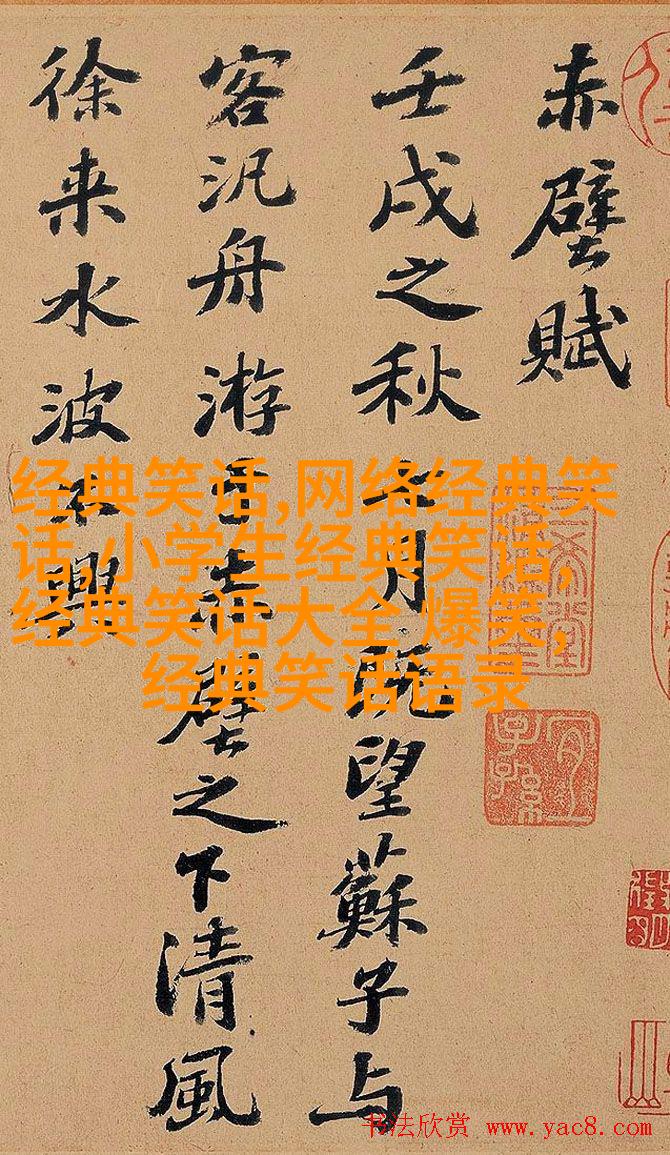 赤壁賦
壬戌之秋七月既望蘇子与
客汎舟游于赤壁之下清風
徐来水波不興
经典笑话,网络经典笑
话,小学生经典笑话,
经典笑话大全 爆笑,
经典笑话语录
宜子孫
书法欣赏 www.yac8.com